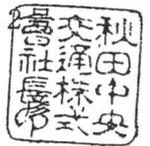 秋田中央
交通株式
會社長印